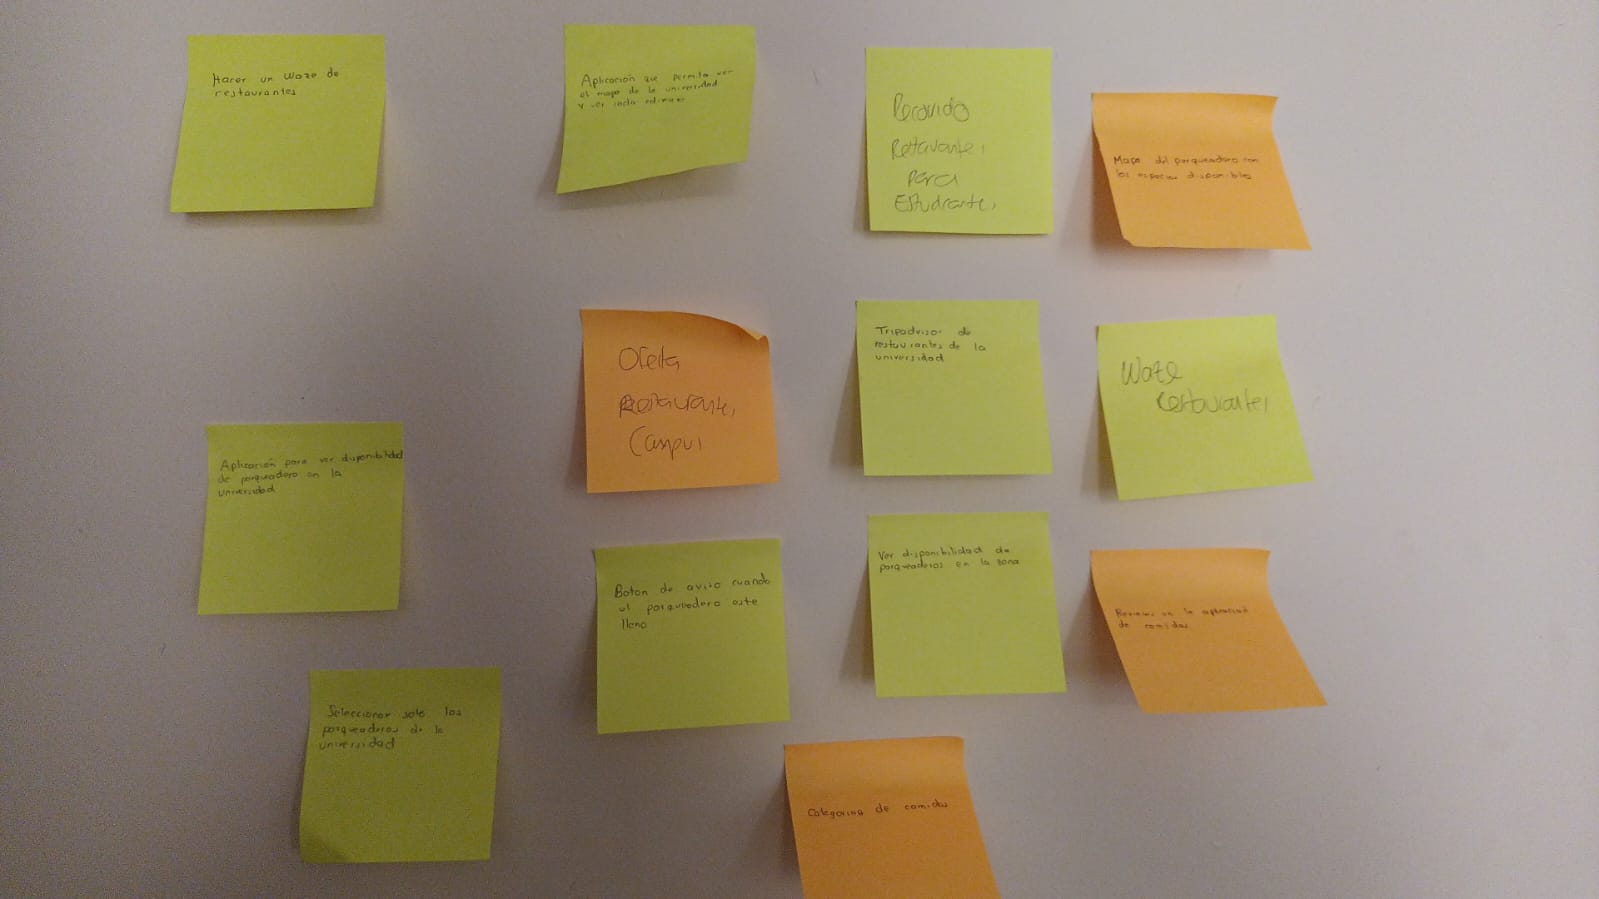 Hacer un Waze de
restaurantes
Aplicación que permita ver
el mapa de la universidad
y ver cada edificio
Recorrido
Restaurantes
para
Estudiantes
Mapa del parqueadero con
los espacios disponibles
Oferta
Restaurantes
Campus
Tripadvisor de
restaurantes de la
universidad
Waze
restaurantes
Aplicación para ver disponibilidad
de parqueadero en la
universidad
Boton de aviso cuando
el parqueadero este
lleno
Ver disponibilidad de
parqueaderos en la zona
Reviews en la aplicacion
de comidas
Seleccionar solo los
parqueaderos de la
universidad
Categorias de comidas